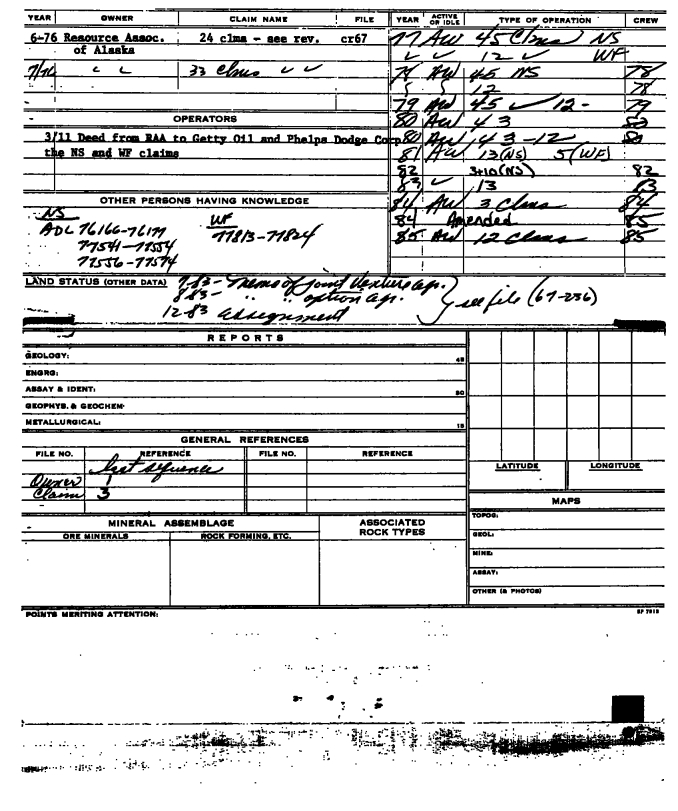 YEAR OWNER CLAIM NAME FILE YEAR ACTIVE OR IDLE TYPE OF OPERATION CREW
6-76 Resource Assoc. 24 clms - see rev. cr67 77 AW 45 Clms NS
of Alaska ✓ ✓ 12 ✓ WF
7/76 " " 33 Clms ✓ ✓ 78 AW 45 NS 78
12 78
79 AW 45 ✓ 12 - 79
OPERATORS 80 AW 43 80
3/11 Deed from RAA to Getty Oil and Phelps Dodge Corp 80 AW 43-12 80
the NS and WF claims 81 AW 13(NS) 5(WF)
82 3+10(NS) 82
83 ✓ 13 83
OTHER PERSONS HAVING KNOWLEDGE 84 AW 3 Clms 84
NS WF 84 Amended 85
ADL 76166-76177 77813-77824 85 AW 12 Clms 85
77541-77554
77556-77574
LAND STATUS (OTHER DATA) 7-83- Memo of joint venture agr.
8-83- " " option agr. } see file (67-236)
12-83 assignment
REPORTS
GEOLOGY: 45
ENGRG:
ASSAY & IDENT: 50
GEOPHYS. & GEOCHEM-
METALLURGICAL: 15
GENERAL REFERENCES
FILE NO. REFERENCE FILE NO. REFERENCE
last sequence
Owner 1
Claim 3
LATITUDE LONGITUDE
MAPS
MINERAL ASSEMBLAGE ASSOCIATED ROCK TYPES
ORE MINERALS ROCK FORMING, ETC.
TOPOG:
GEOL:
MINE:
ASSAY:
OTHER (& PHOTOS)
POINTS MERITING ATTENTION: SP 7918